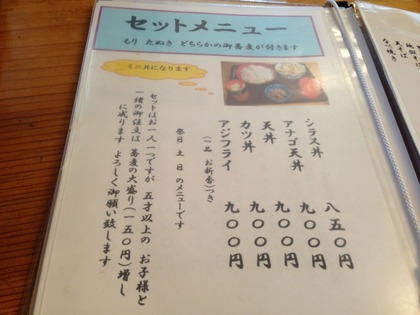 セットメニュー
もり たぬき どちらかの御蕎麦が付きます
ミニ丼になります
シラス丼 八五〇円
アナゴ天丼 九〇〇円
天丼 九〇〇円
カツ丼 九〇〇円
アジフライ 九〇〇円
(一品 お新香)つき
祭日 土 日 のメニューです
セットはお一人一つですが 五才以上の お子様と
一緒の御注文は 蕎麦の大盛り(一五〇円)増し
に成ります よろしく御願い致します